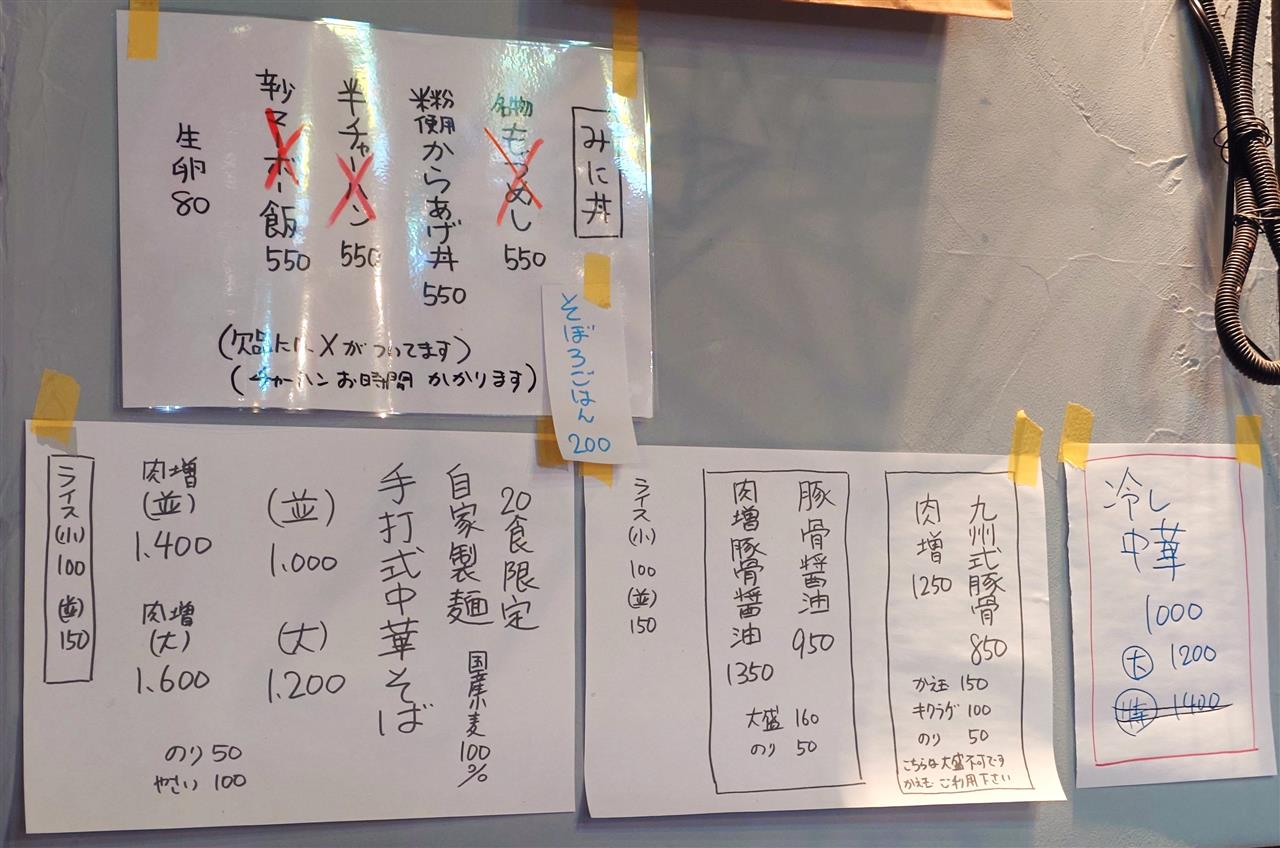 みに丼
名物
もつめし
550
米粉
使用からあげ丼
550
半チャーハン
550
辛マーボー飯
550
生卵
80
(欠品には×がついてます)
(チャーハンお時間かかります)
そぼろごはん
200
20食限定
自家製麺
国産小麦100%
手打式中華そば
(並)
1.000
(大)
1.200
肉増
(並)
1.400
肉増
(大)
1.600
のり 50
やさい 100
ライス(小)100 (並)150
九州式豚骨
850
肉増
1250
かえ玉 150
キクラゲ 100
のり 50
こちらは大盛不可です
かえ玉ご利用下さい
豚骨醤油
950
肉増豚骨醤油
1350
大盛 160
のり 50
ライス(小)
100
(並)
150
冷し
中華
1000
大 1200
特 1400